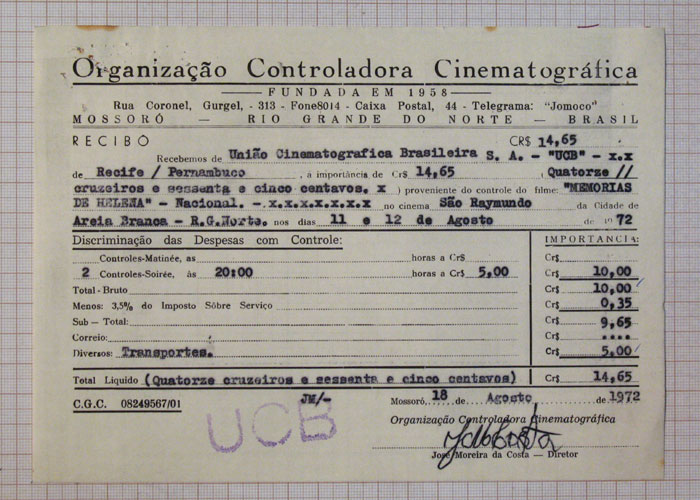 Organização Controladora Cinematográfica
FUNDADA EM 1958
Rua Coronel, Gurgel, - 313 - Fone8014 - Caixa Postal, 44 - Telegrama: "Jomoco"
MOSSORÓ — RIO GRANDE DO NORTE — BRASIL
RECIBO CR$ 14,65
Recebemos de União Cinematografica Brasileira S. A. - "UCB" - x.x
de Recife / Pernambuco , a importância de Cr$ 14,65 ( Quatorze //
cruzeiros e sessenta e cinco centavos. x ) proveniente do controle do filme: "MEMORIAS
DE HELENA" - Nacional. -.x.x.x.x.x.x.x no cinema São Raymundo da Cidade de
Areia Branca - R.G.Norte. nos dias 11 e 12 de Agosto de 1972
Discriminação das Despesas com Controle: IMPORTANCIA:
Controles-Matinée, as horas a Cr$ Cr$
2 Controles-Soirée, às 20:00 horas a Cr$ 5,00 Cr$ 10,00
Total - Bruto Cr$ 10,00
Menos: 3,5% do Imposto Sôbre Serviço Cr$ 0,35
Sub — Total: Cr$ 9,65
Correio: Cr$ ....
Diversos: Transportes. Cr$ 5,00
Total Liquido (Quatorze cruzeiros e sessenta e cinco centavos) Cr$ 14,65
C.G.C. 08249567/01 JM/- Mossoró, 18 de Agosto de 1972
UCB
Organização Controladora Cinematográfica
José Moreira da Costa — Diretor